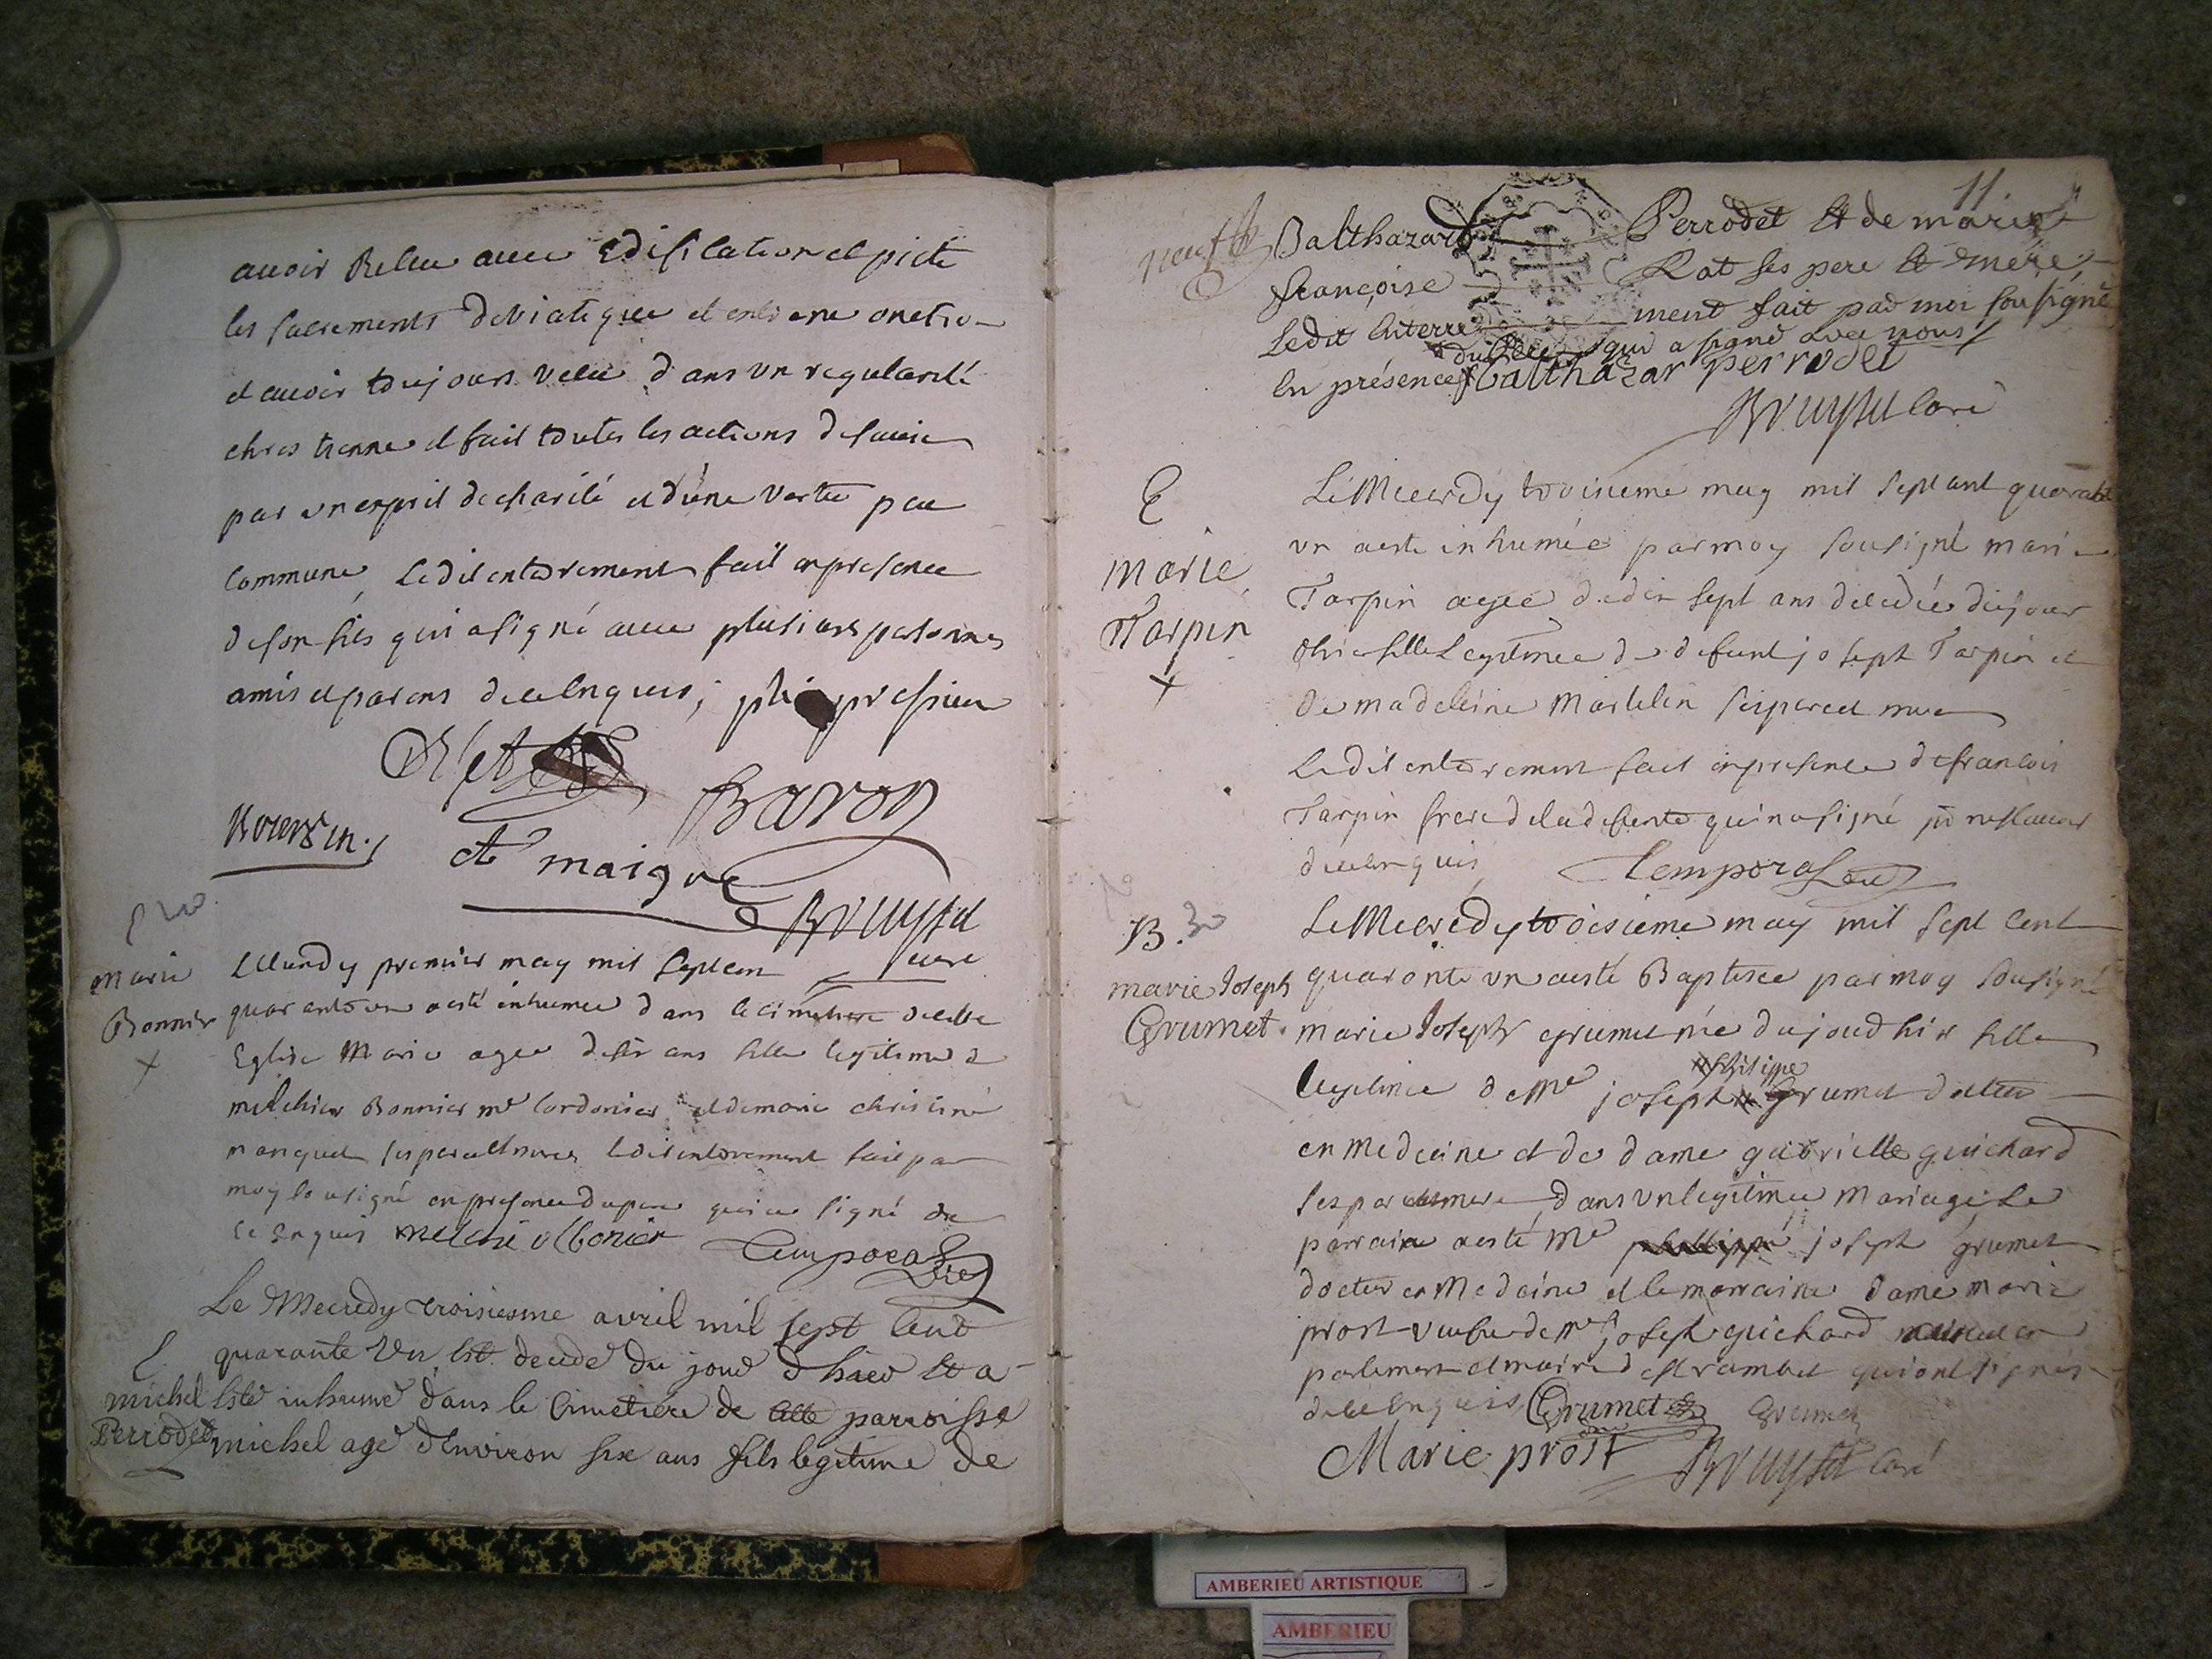 avoir Relue avec Edification et pieté
les sacrements deviatique et extreme onctio-
et avoir toujours vecu dans un regularité
chrestienne et fait toutes les actions desavie
par un esprit decharité et d'une vertu peu
commune, Ledit enterrement fait enpresence
deson fils qui asigné avec plusieurs personnes
amis et parens deceenquis;
Baron
Bourdin.
maigre
Bruyset
curé
Marie
Bonnier
+
LeLundy premier may mil septcen
quarante un aesté inhumee dans lecimetiere decette
Eglise Marie agee desix ans fille legitime de
melchior Bonnier me Cordonier et demarie christine
manquet ses pere etmere ledit enterrement fait par
moy sousigné en presence dupere qui a signé de
ce enquis melchi bonier Temporal
vic
Le Mecredy troisiesme avril mil sept Cent
E. quarante Un Est decedé du jour d'hier Et a
michel Esté inhumé dans le Cimetiere de Cette parroisse
Perrodet michel agé d'Environ six ans fils legitime de
11
neuf
Balthazard Perrodet Et de marie
françoise Rat ses pere Et mere,
Ledit Enterrement fait par moi sousigné
du Pere qui a signé avec nous
En présence Balthazar perrodet
Bruyset Curé
E
Marie
Tarpin
+
LeMecredy troisieme may mil septcent quarante
un aesté inhumée parmoy sousigné marie
Tarpin agée dedix sept ans decedée dujour
dhier fille Legitimee de defunt joseph Tarpin et
de madeleine Martelin sespereet mere
Ledit enterrement fait enpresence defrancois
Tarpin frere deladefunte quinasigné pr nescavoir
deceenquis Temporal vic
B. 30
marie Joseph
Grumet.
LeMecredy troisieme may mil sept Cent
quarante un aesté Baptisee parmoy sousigné
marie Joseph grumet née dujourdhier fille
legitimee de Me joseph philippe Grumet docteur
en medecine et de dame gabrielle guichard
ses pere etmere dans unlegitimee mariage. Le
parrain aesté Me phillippe joseph grumet
docteur en Medecine et lamarraine dame marie
prost veufve de Me joseph guichard en
parlement et maire de st rambert quiont signés
deceenquis Grumet Grumet
Marie prost Bruyset Curé
AMBERIEU ARTISTIQUE
AMBERIEU